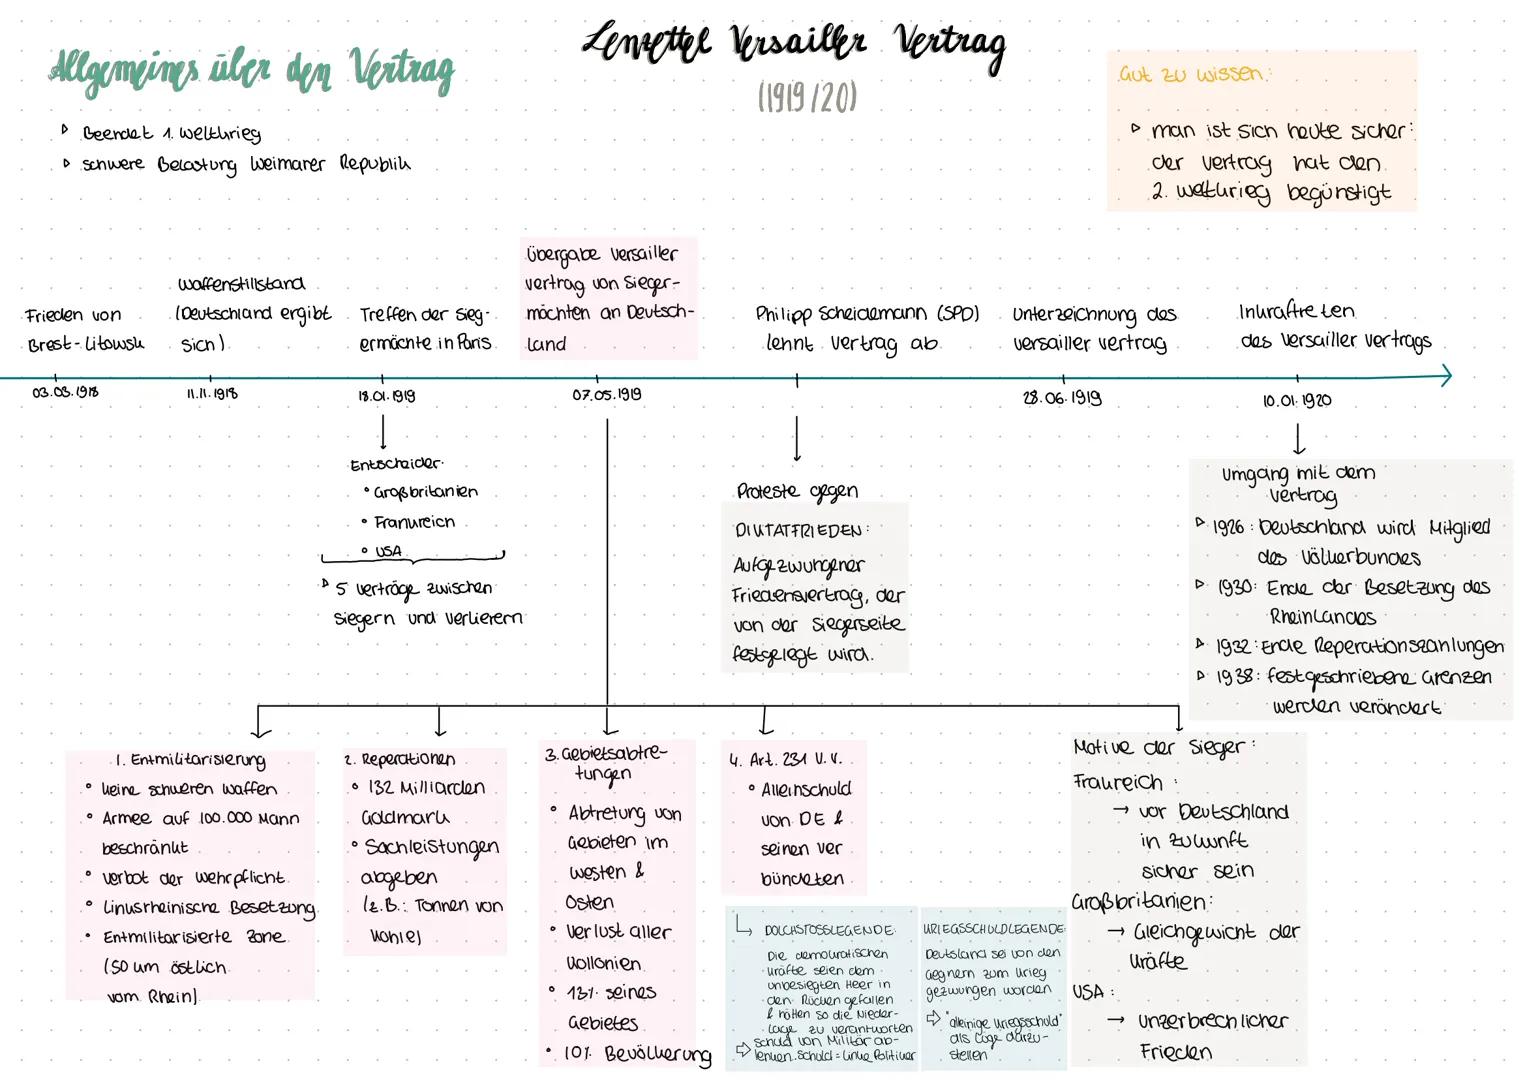 Lenzettel Versailler Vertrag
(1919/20)
Allgemeines über den Vertrag
▷ Beendet 1. Weltkrieg
▷ schwere Belastung Weimarer Republik
Gut zu wissen:
▷ man ist sich heute sicher:
der Vertrag hat den
2. Weltkrieg begünstigt
Frieden von
Brest-Litowsk
03.03.1918
Waffenstillstand
(Deutschland ergibt
sich)
11.11.1918
Treffen der Sieg-
ermächte in Paris
18.01.1919
Übergabe Versailler
Vertrag von Sieger-
mächten an Deutsch-
land
07.05.1919
Philipp Scheidemann (SPD)
lehnt Vertrag ab
Unterzeichnung des
Versailler Vertrag
28.06.1919
Inkraftreten
des Versailler Vertrags
10.01.1920
Entscheider
• Großbritanien
• Frankreich
• USA
▷ 5 Verträge zwischen
Siegern und Verlierern
Proteste gegen
DIKTATFRIEDEN:
Aufgezwungener
Friedensvertrag, der
von der Siegerseite
festgelegt wird.
Umgang mit dem
Vertrag
▷ 1926: Deutschland wird Mitglied
des Völkerbundes
▷ 1930: Ende der Besetzung des
Rheinlandes
▷ 1932: Ende Reperationszahlungen
▷ 1938: festgeschriebene Grenzen
werden verändert
1. Entmilitarisierung
• keine schweren Waffen
• Armee auf 100.000 Mann
beschränkt
• Verbot der Wehrpflicht
• Linksrheinische Besetzung
• Entmilitarisierte Zone
(50 km östlich
vom Rhein)
2. Reperationen
• 132 Milliarden
Goldmark
• Sachleistungen
abgeben
(z.B.: Tonnen von
Kohle)
3. Gebietsabtre-
tungen
• Abtretung von
Gebieten im
Westen &
Osten
• Verlust aller
Kollonien
• 13% seines
Gebietes
• 10% Bevölkerung
4. Art. 231 V.V.
• Alleinschuld
von DE &
seinen Ver
bündeten
↳ DOLCHSTOSSLEGENDE
Die demokratischen
Kräfte seien dem
unbesiegten Heer in
den Rücken gefallen
& hätten so die Nieder-
lage zu verantworten
⇒ Schuld von Militär ab-
lenken. Schuld = Linke Politiker
KRIEGSSCHULDLEGENDE
Deutsland sei von den
Gegnern zum Krieg
gezwungen worden
⇒ "alleinige Kriegsschuld"
als Lüge darzu-
stellen
Motive der Sieger:
Fraureich:
→ vor Deutschland
in Zukunft
sicher sein
Großbritanien:
→ Gleichgewicht der
Kräfte
USA:
→ unzerbrechlicher
Frieden